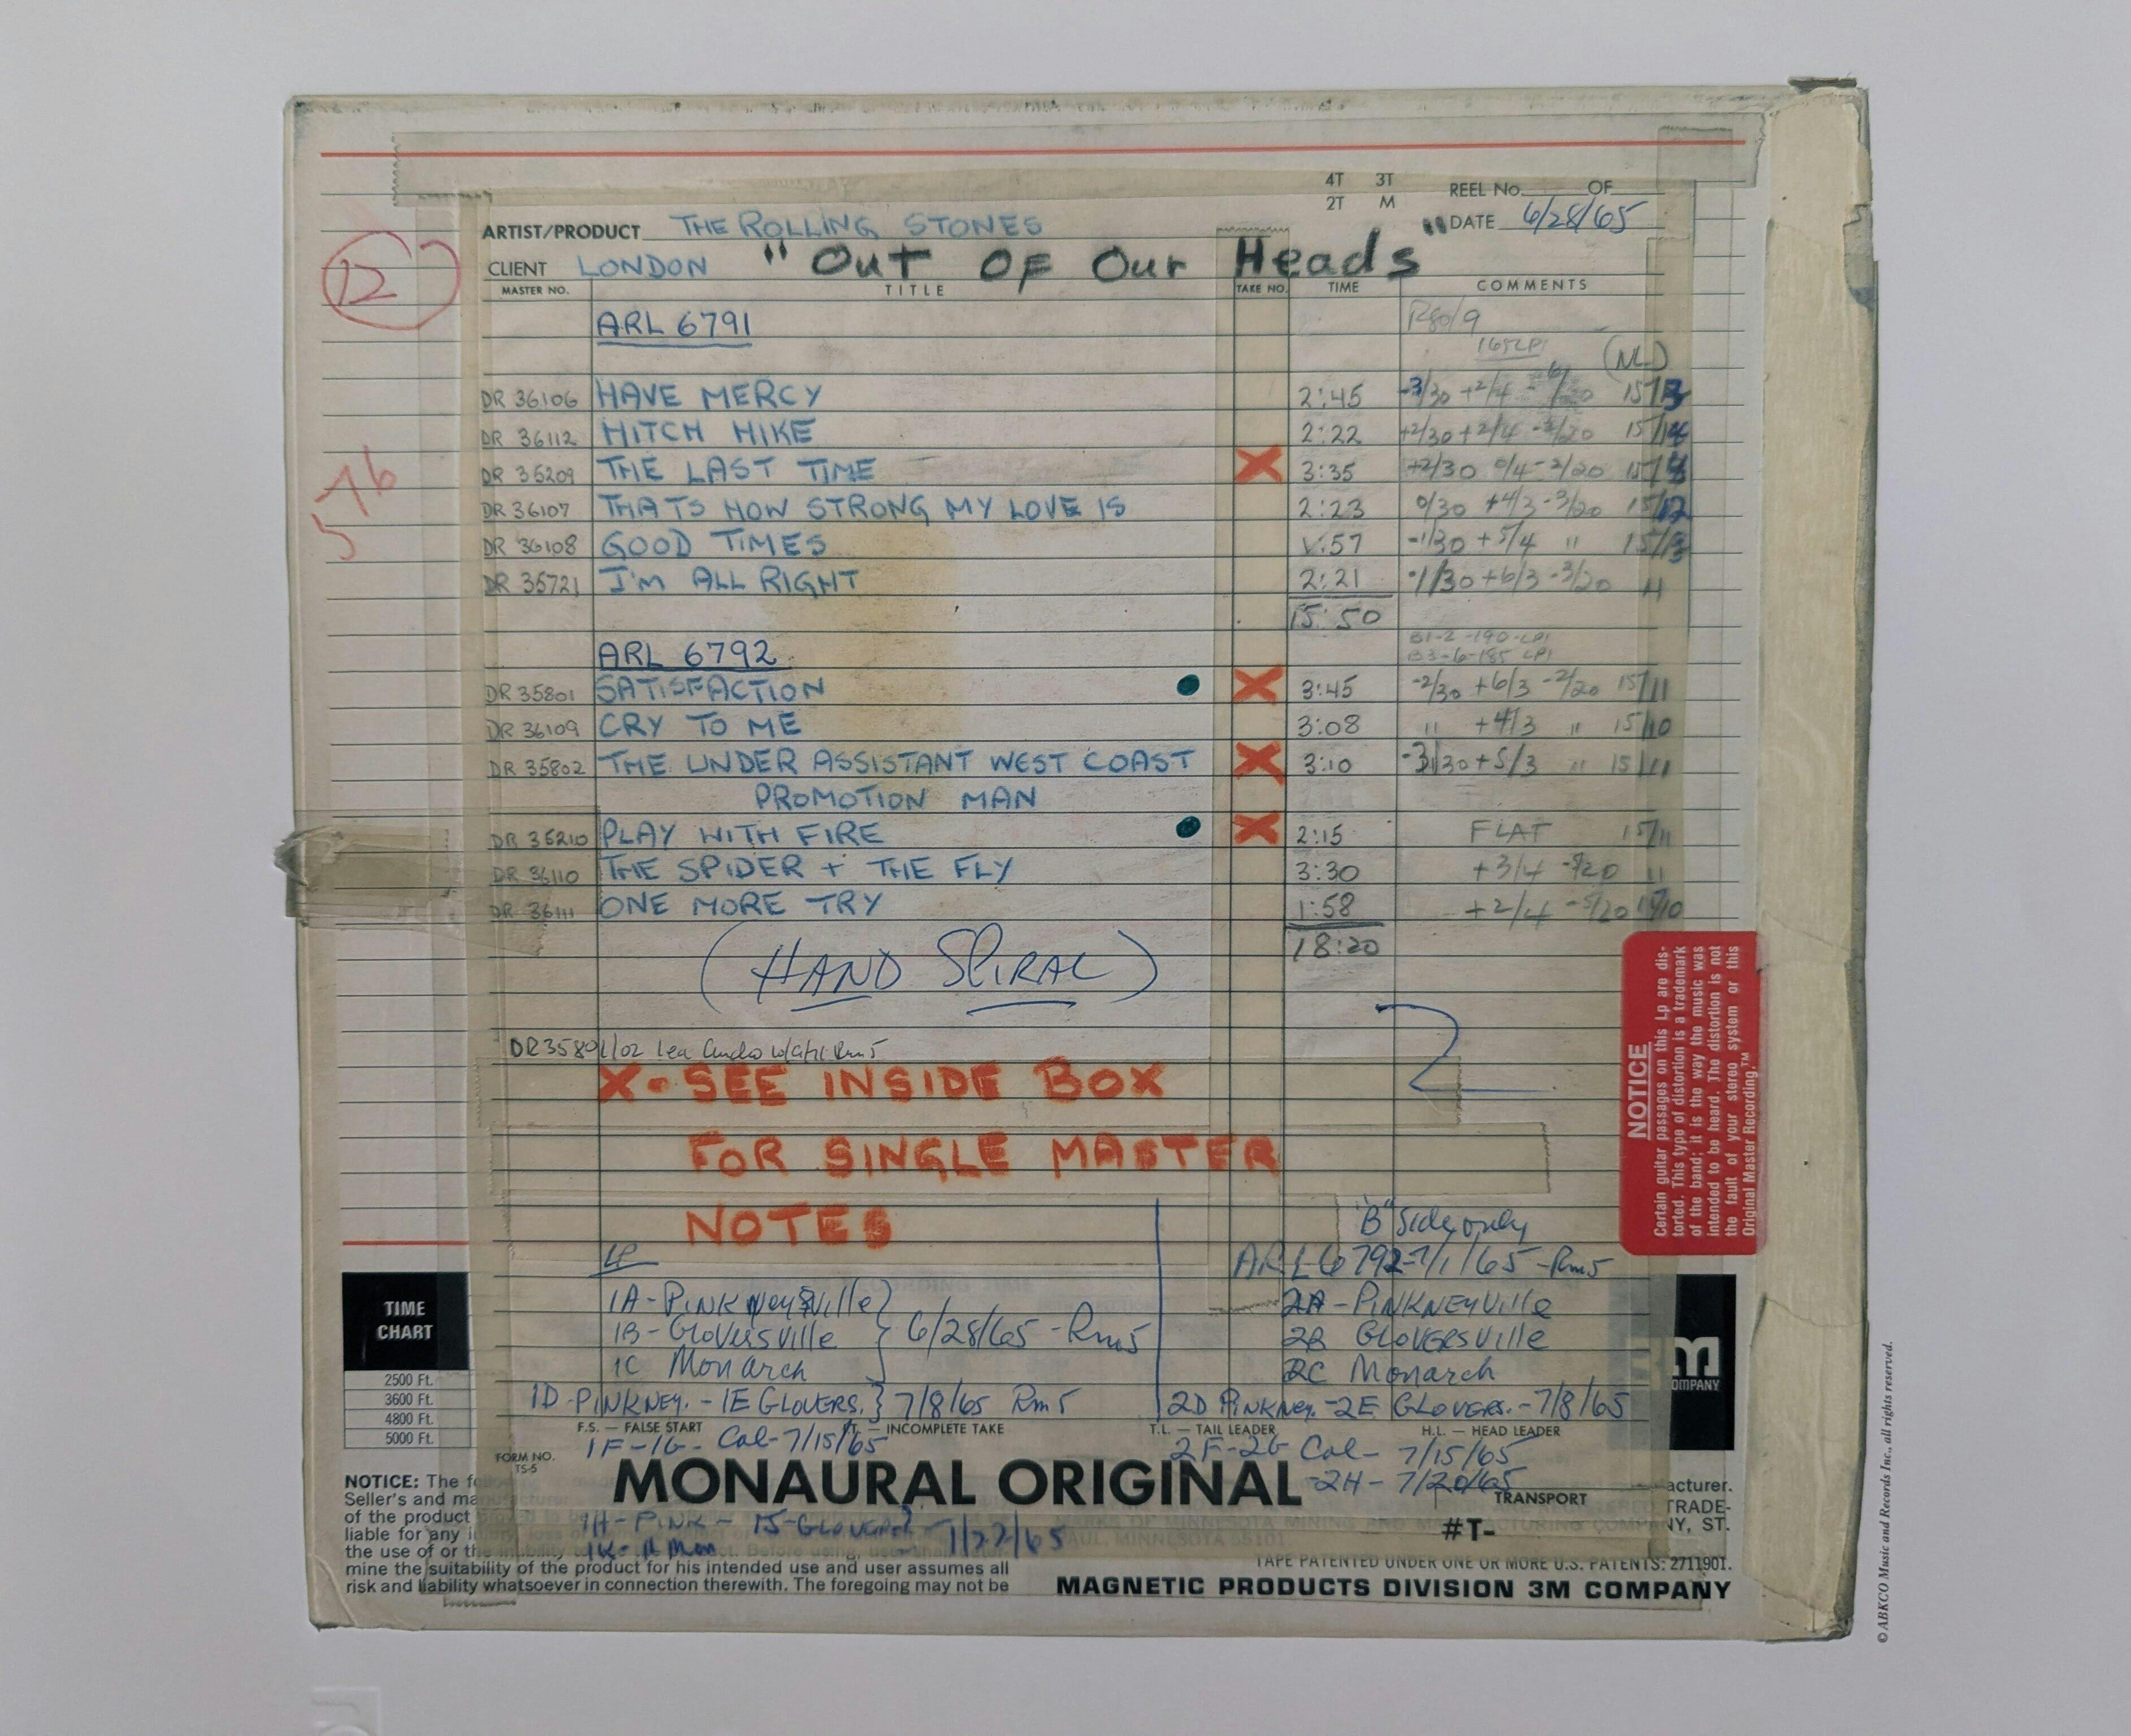 4T 3T
2T M
REEL No. OF
ARTIST/PRODUCT THE ROLLING STONES
DATE 6/28/65
CLIENT LONDON "OuT OF Our Heads"
MASTER NO. TITLE TAKE NO. TIME COMMENTS
12
ARL 6791
165LPI
(NLD)
DR 36106 HAVE MERCY 2:45 -3/30 +2/4
DR 36112 HITCH HIKE 2:22 +2/30 +2/4
DR 35209 THE LAST TIME X 3:35 +2/30 0/4 -2/20
DR 36107 THATS HOW STRONG MY LOVE IS 2:23 0/30 +4/3 -3/20
DR 36108 GOOD TIMES 1:57 -1/30 +5/4 "
DR 35721 I'M ALL RIGHT 2:21 -1/30 +6/3 -3/20 "
15:50
5
ARL 6792
B1-2-190-LPI
B3-6-185 LPI
DR 35801 SATISFACTION X 3:45 -2/30 +6/3 -2/20 15/11
DR 36109 CRY TO ME 3:08 " +4/3 " 15/10
DR 35802 THE UNDER ASSISTANT WEST COAST X 3:10 -3/30 +5/3 " 15/11
PROMOTION MAN
DR 35210 PLAY WITH FIRE X 2:15 FLAT 15/11
DR 36110 THE SPIDER + THE FLY 3:30 +3/4 "
DR 36111 ONE MORE TRY 1:58 +2/4 -5/20
18:20
(HAND SPIRAL)
2
DR35801/02
X - SEE INSIDE BOX
FOR SINGLE MASTER
NOTES
NOTICE
Certain guitar passages on this Lp are dis-
torted. This type of distortion is a trademark
of the band; it is the way the music was
intended to be heard. The distortion is not
the fault of your stereo system or this
Original Master Recording.™
"B" Side only
LP
ARL 6792-7/1/65-Rm5
1A-PINKNeySVille
2A-PINKNEYVille
1B-GloversVille } 6/28/65-Rm5
2B GLOVERSVille
1C Monarch
2C Monarch
1D-PINKNEY.-1E GLOVERS. } 7/8/65 Rm5
2D PINKNEY.-2E GLOVERS.-7/8/65
TIME
CHART
2500 Ft.
3600 Ft.
4800 Ft.
5000 Ft.
3M
COMPANY
F.S. — FALSE START I.T. — INCOMPLETE TAKE T.L. — TAIL LEADER H.L. — HEAD LEADER
1F-1G- Cal-7/15/65
2F-2G Cal- 7/15/65
FORM NO.
TS-5
MONAURAL ORIGINAL
2H- 7/20/65
TRANSPORT
#T-
1H-PINK- 1J-GLOVERS - 7/22/65
NOTICE: The
Seller's and
of the product
liable for any
the use of or
mine the suitability of the product for his intended use and user assumes all
risk and liability whatsoever in connection therewith. The foregoing may not be
acturer.
TRADE-
NY, ST.
PAUL, MINNESOTA 55101
TAPE PATENTED UNDER ONE OR MORE U.S. PATENTS: 2711901.
MAGNETIC PRODUCTS DIVISION 3M COMPANY
© ABKCO Music and Records Inc., all rights reserved.